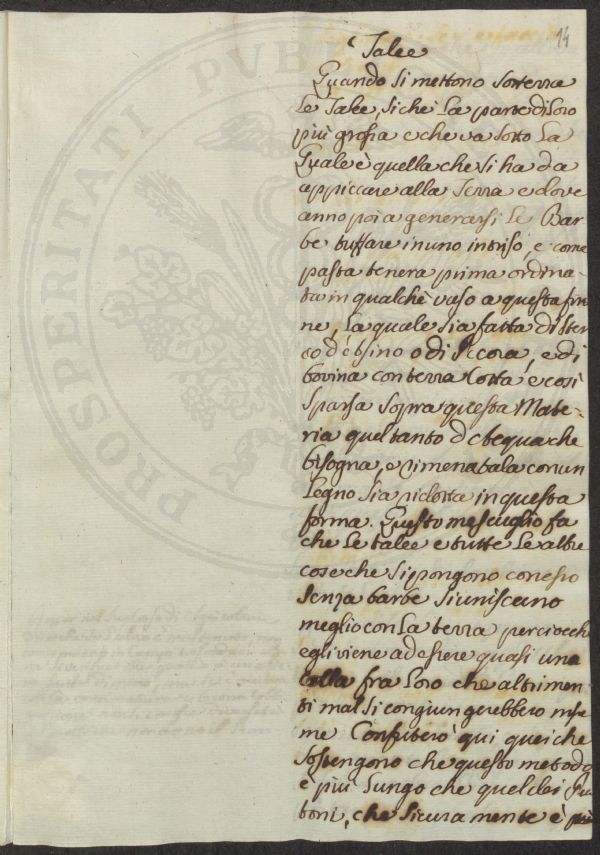 14
Talee
Quando si mettono sotterra
Le Talee, siche La parte di Loro
più grossa e che va sotto La
Quale è quella che si ha da
appiccare alla Terra e dove
anno poi a generarsi Le Bar
be tuffare in uno intriso, e come
pasta tenera prima ordina-
ta in qualche vaso a questo fi
ne, La quale sia fatta di ster
co d'asino o di Pecora, e di
bovina con terra Cotta e così
Sparsa sopra questa Mate-
ria quel tanto d'acqua che
bisogna, e rimenatala con un
Legno sia ridotta in questa
forma. Questo mescuglio fa
che Le talee e tutte Le altre
cose che si pongono con esso
Senza barbe si uniscano
meglio con La terra percioche
egli viene ad essere quasi una
Colla fra Loro che altrimen
ti mal si congiungerebbero insie
me Confuterò qui quei che
Sostengono che questo metodo
è più Lungo che quel dei
boni, che sicuramente è più
PROSPERITATI PVB